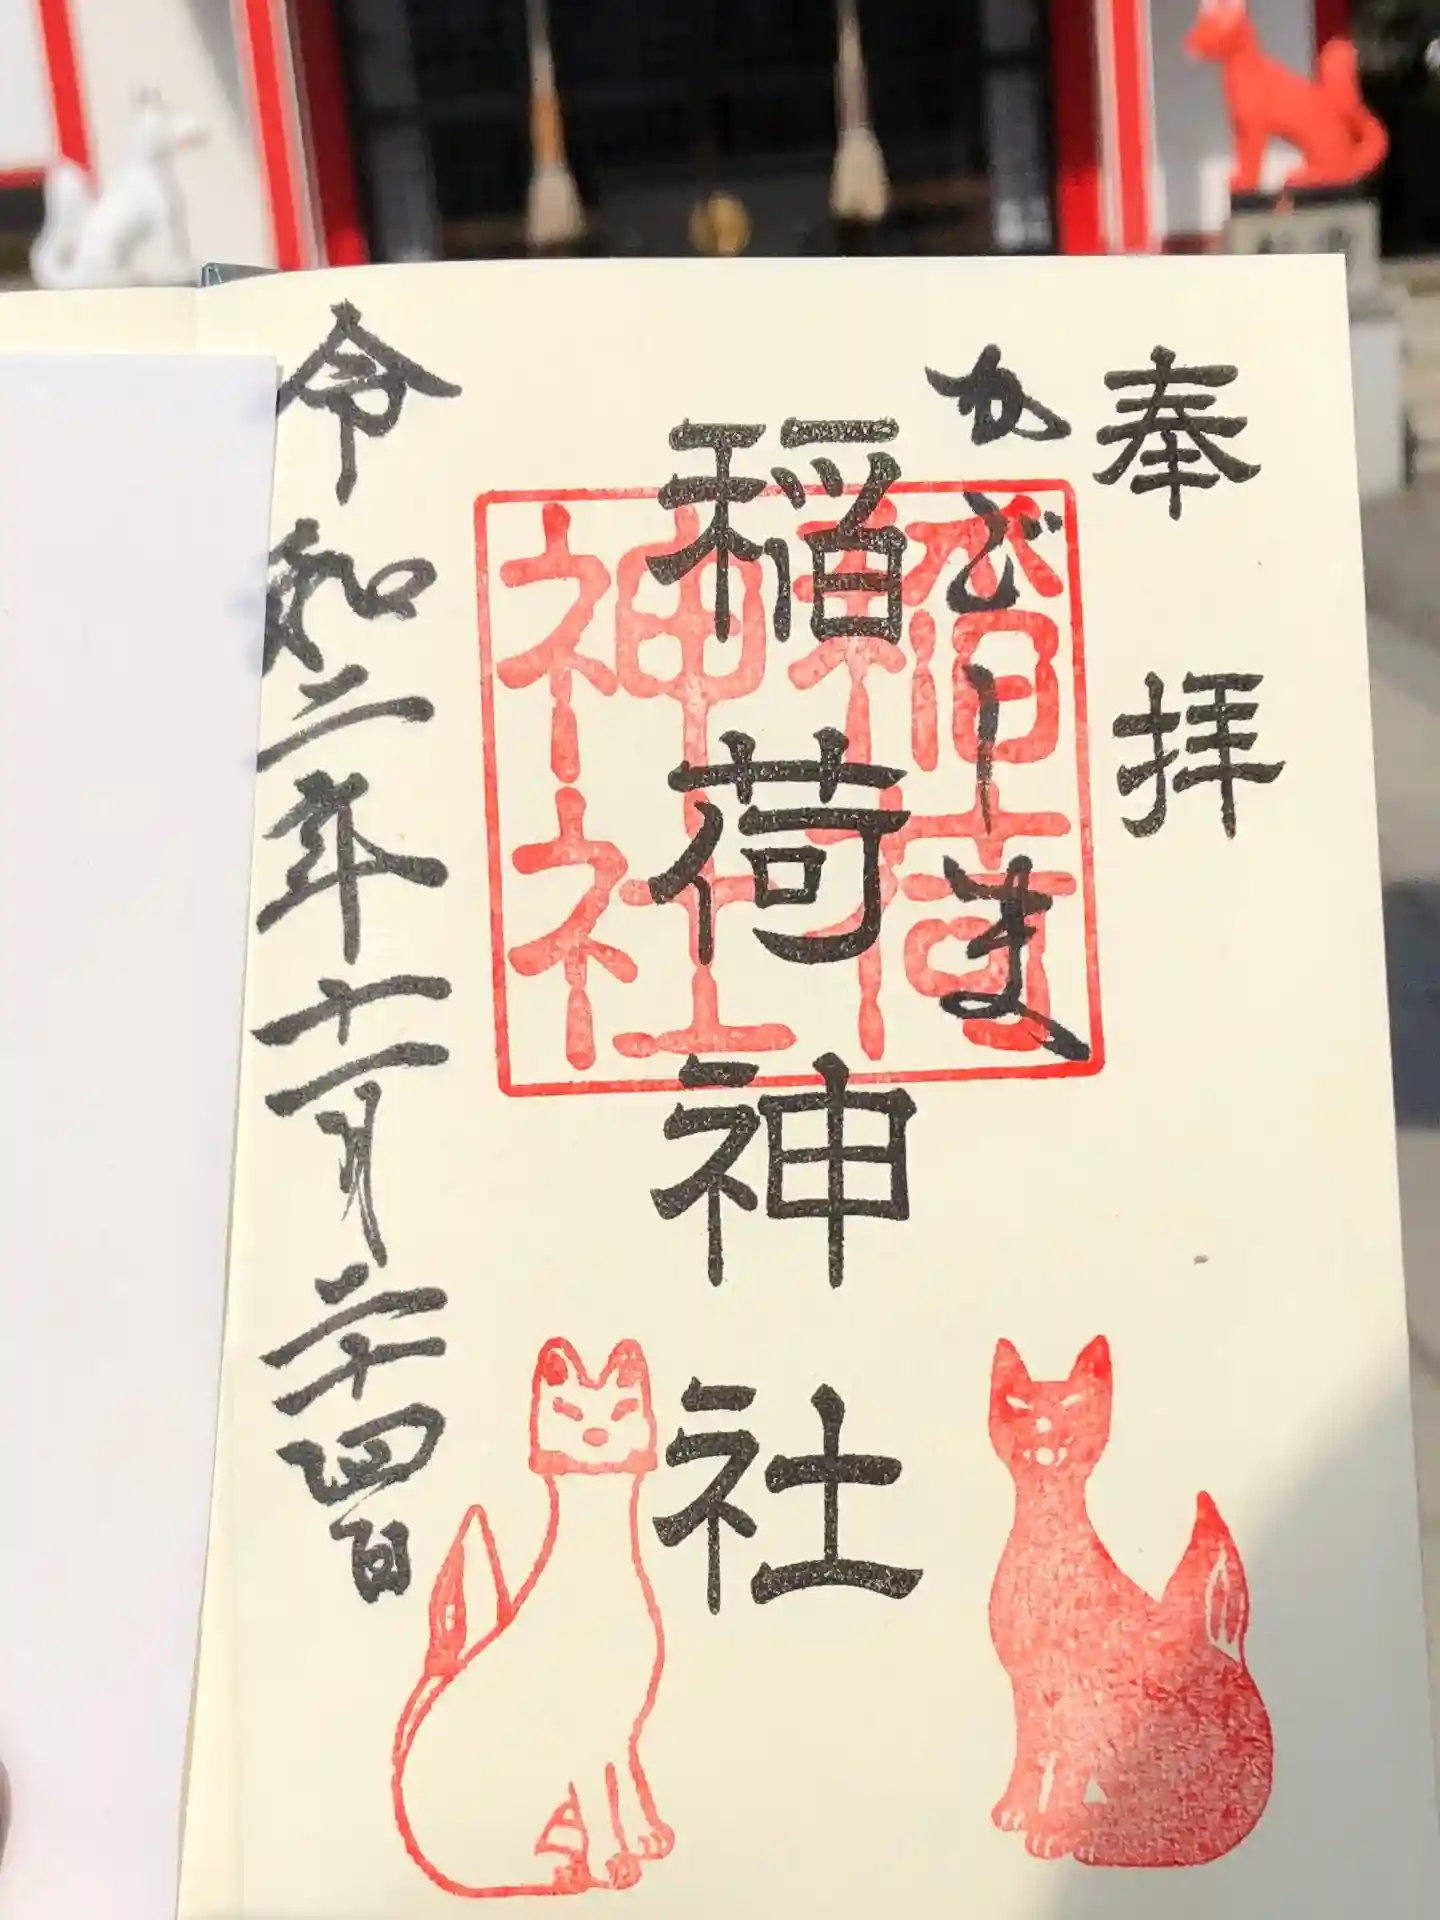 奉拝
稲荷神社
稲荷神社
令和二年十一月二十四日